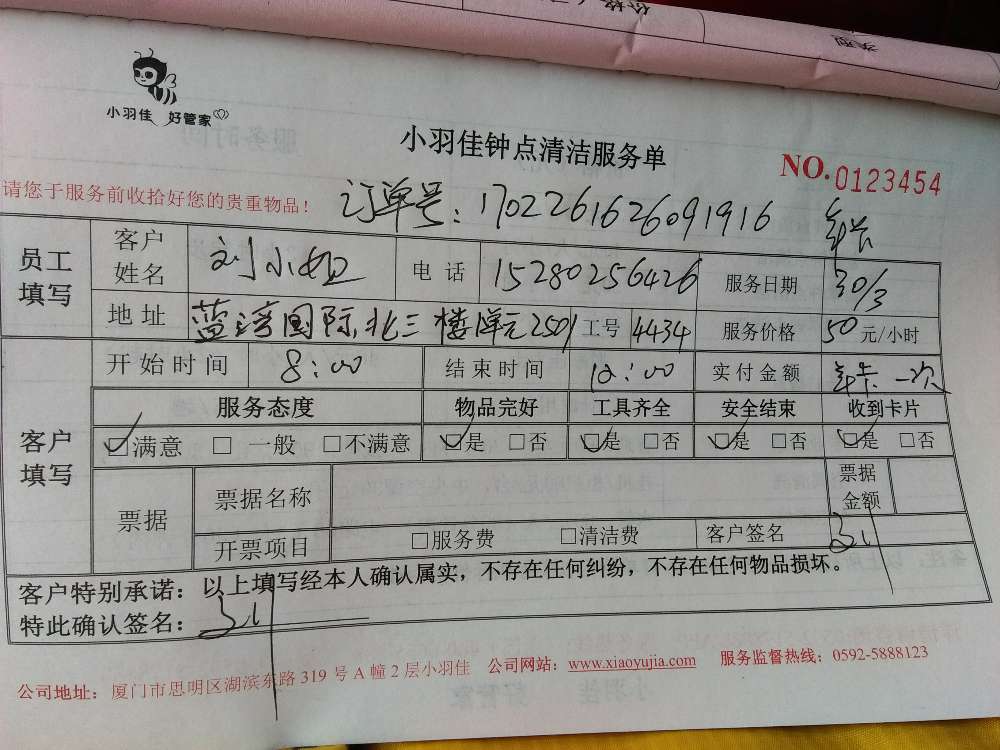 小羽佳 好管家
小羽佳钟点清洁服务单
NO.0123454
请您于服务前收拾好您的贵重物品！
订单号：1702261626091916
员工填写 客户姓名 刘小姐 电话 15280256426 服务日期 30/3
地址 蓝湾国际北三楼1单元2501 工号 4434 服务价格 50 元/小时
客户填写 开始时间 8:00 结束时间 12:00 实付金额 年卡一次
服务态度 物品完好 工具齐全 安全结束 收到卡片
☑满意 □一般 □不满意 ☑是 □否 ☑是 □否 ☑是 □否 ☑是 □否
票据 票据名称 票据金额
开票项目 □服务费 □清洁费 客户签名
客户特别承诺：以上填写经本人确认属实，不存在任何纠纷，不存在任何物品损坏。
特此确认签名：
公司地址：厦门市思明区湖滨东路 319 号 A 幢 2 层小羽佳 公司网站：www.xiaoyujia.com 服务监督热线：0592-5888123